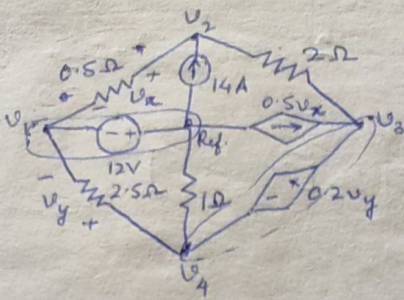 v2
0.5Ω + vx -
2Ω
14A
0.5vx
v1
- +
Ref.
v3
12V
- vy +
2.5Ω
1Ω
- +
0.2vy
v4